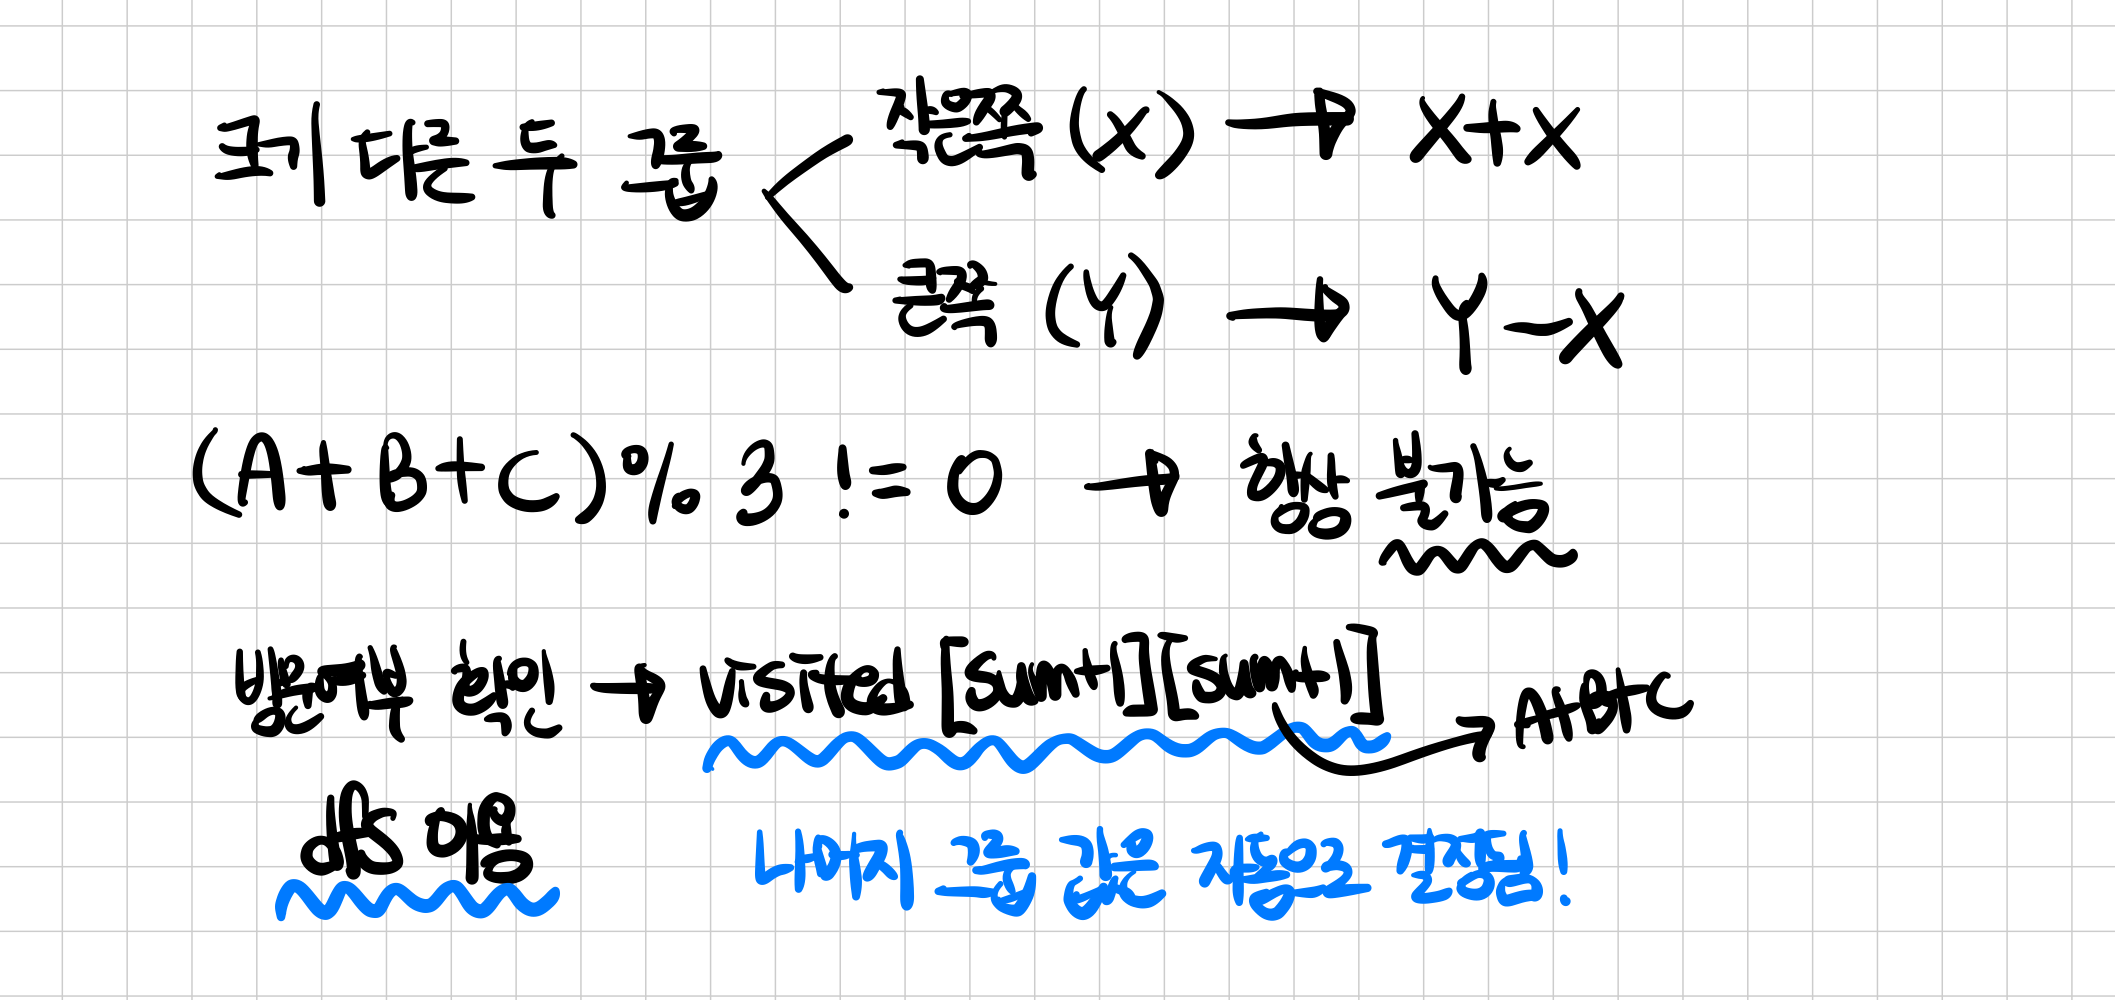 크기 다른 두 그룹
작은쪽 (X) → X+X
큰쪽 (Y) → Y-X
(A+B+C)%3 != 0 → 항상 불가능
방문여부 확인 → visited [sum+1][sum+1] → A+B+C
dfs 이용
나머지 그룹 값은 자동으로 결정됨!